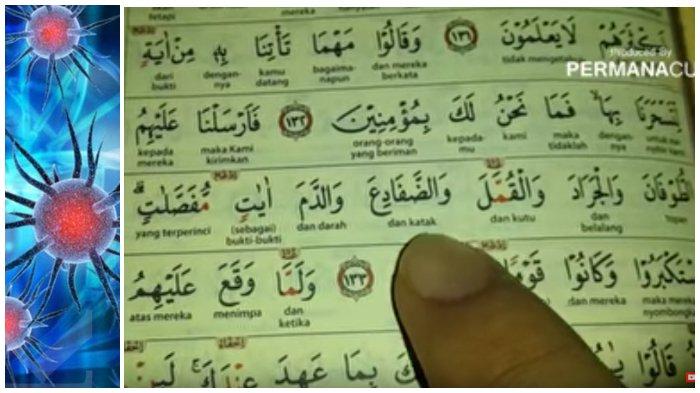 أَكْثَرَهُمْ لَا يَعْلَمُوْنَ ١٣١ وَقَالُوْا مَهْمَا تَأْتِنَا بِهٖ مِنْ اٰيَةٍ
tetapi mereka tidak mengetahui dan mereka berkata bagaima-napun kamu datang dengan-nya dari bukti
Produced By
PERMANACU
لِّتَسْحَرَنَا بِهَاۙ فَمَا نَحْنُ لَكَ بِمُؤْمِنِيْنَ ١٣٢ فَاَرْسَلْنَا عَلَيْهِمُ
dengan-nya maka tidaklah kami kepada-mu orang-orang yang beriman maka Kami kirimkan kepada mereka
الطُّوْفَانَ وَالْجَرَادَ وَالْقُمَّلَ وَالضَّفَادِعَ وَالدَّمَ اٰيٰتٍ مُّفَصَّلٰتٍۗ
topan dan belalang dan kutu dan katak dan darah (sebagai) bukti-bukti yang terperinci
وَكَانُوْا ١٣٣ وَلَمَّا وَقَعَ عَلَيْهِمُ
dan mereka dan ketika menimpa atas mereka
قَالُوْا بِمَا عَهِدَ عِنْدَكَۚ لَىِٕنْ